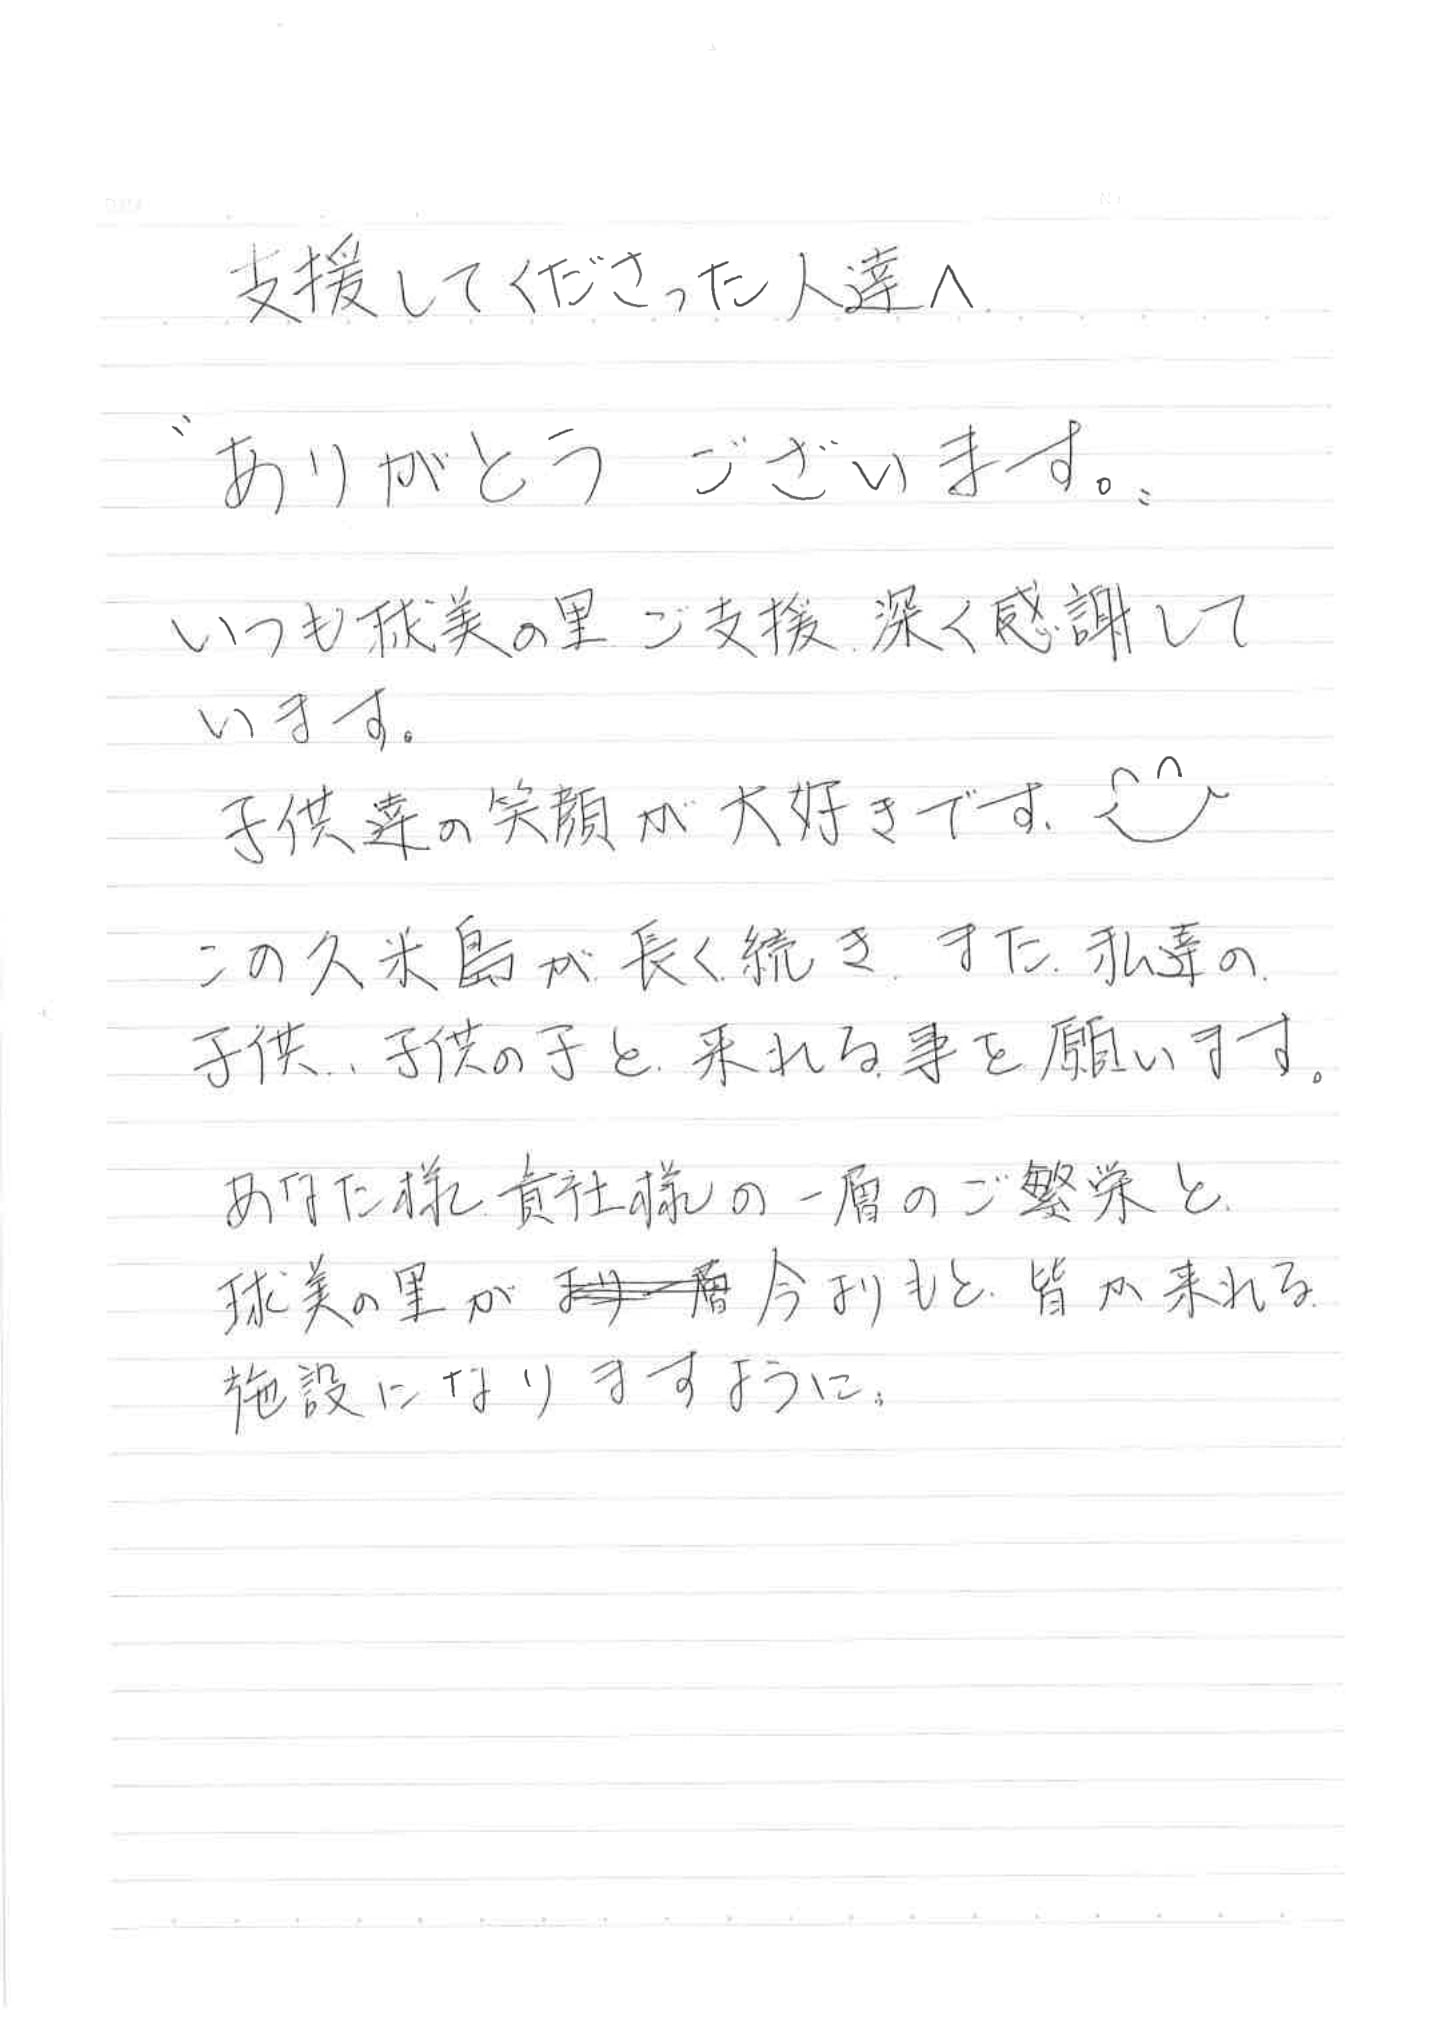 支援してくださった人達へ
〝ありがとう ございます。〟
いつも球美の里 ご支援、深く感謝して
います。
子供達の笑顔が大好きです、
この久米島が長く続き、また、私達の
子供、、子供の子と、来れる事を願います。
あなた様、貴社様の一層のご繁栄と、
球美の里が より一層 今よりもと、皆が来れる
施設になりますように。